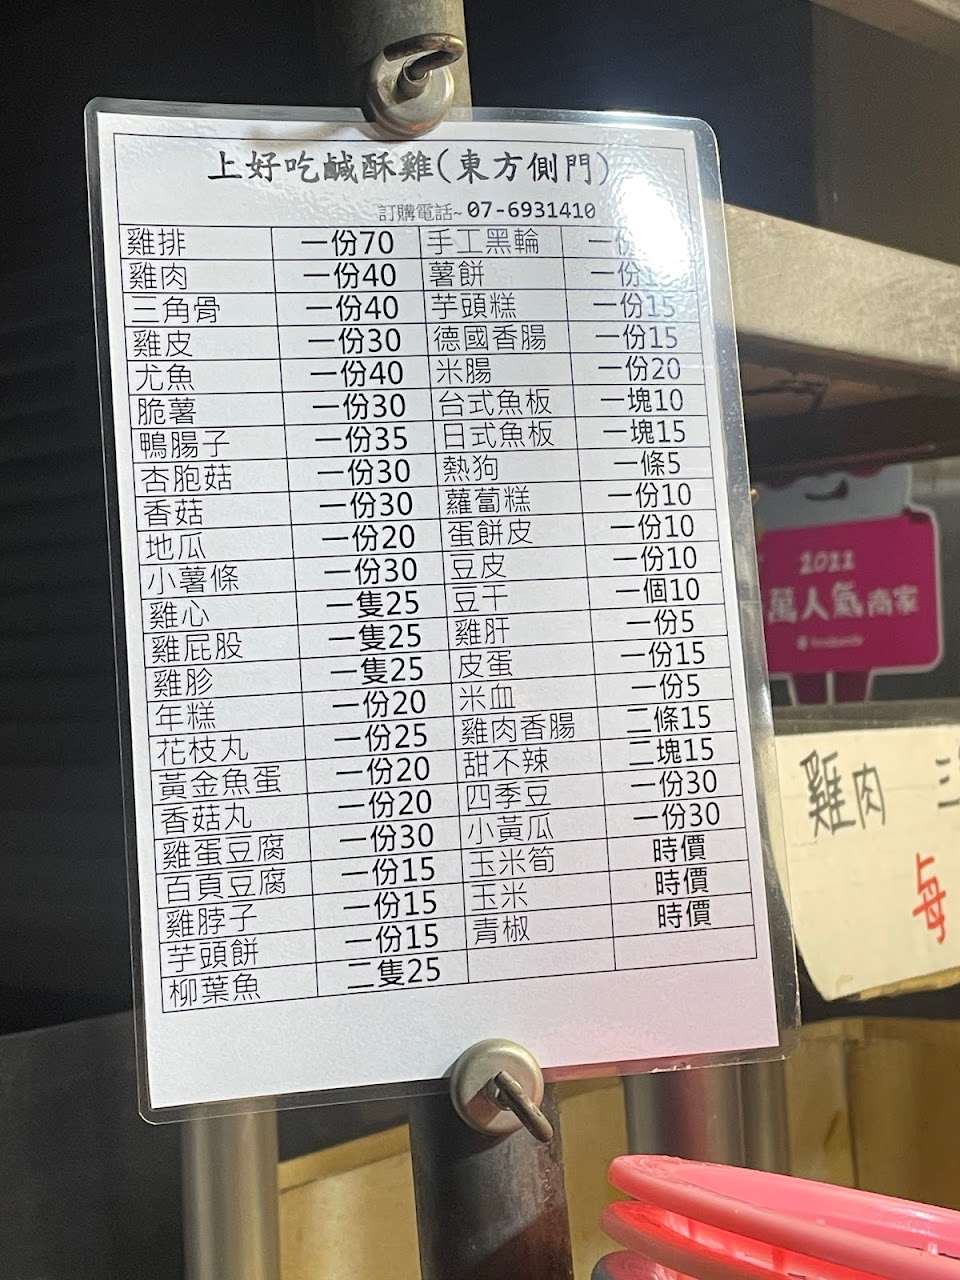 上好吃鹹酥雞(東方側門)
訂購電話~07-6931410
雞排 一份70 手工黑輪 一份
雞肉 一份40 薯餅 一份
三角骨 一份40 芋頭糕 一份15
雞皮 一份30 德國香腸 一份15
尤魚 一份40 米腸 一份20
脆薯 一份30 台式魚板 一塊10
鴨腸子 一份35 日式魚板 一塊15
杏胞菇 一份30 熱狗 一條5
香菇 一份30 蘿蔔糕 一份10
地瓜 一份20 蛋餅皮 一份10
小薯條 一份30 豆皮 一份10
雞心 一隻25 豆干 一個10
雞屁股 一隻25 雞肝 一份5
雞胗 一隻25 皮蛋 一份15
年糕 一份20 米血 一份5
花枝丸 一份25 雞肉香腸 二條15
黃金魚蛋 一份20 甜不辣 二塊15
香菇丸 一份20 四季豆 一份30
雞蛋豆腐 一份30 小黃瓜 一份30
百頁豆腐 一份15 玉米筍 時價
雞脖子 一份15 玉米 時價
芋頭餅 一份15 青椒 時價
柳葉魚 二隻25
2022
萬人氣商家
foodpanda
雞肉 三
每